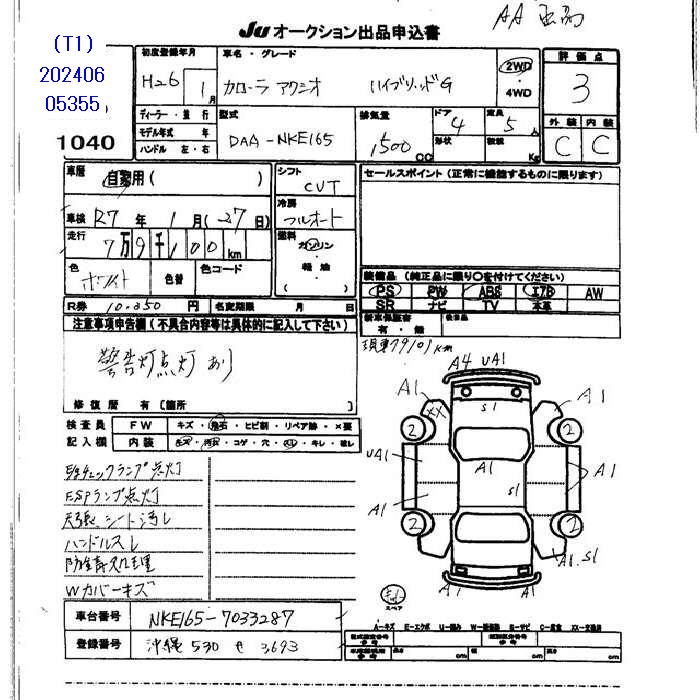 JU オークション出品申込書
(T1)
202406
05355
1040
初度登録年月
H26 1月
車名・グレード
カローラ アクシオ ハイブリッドG
2WD
4WD
評価点
3
外装 内装
C C
ディーラー・並行
モデル年式 年
ハンドル 左・右
型式
DAA-NKE165
排気量
1500 CC
ドア
4
形状
定員
5 人
積載
Kg
車歴
自家用( )
車検 R7年 1月(27日)
走行
7万9千100km
色
ホワイト
色替
色コード
シフト
CVT
冷房
フルオート
燃料
ガソリン・
軽油・
( )
R券 10.350円
名変期限 月 日
セールスポイント(正常に機能するものに限ります)
装備品(純正品に限り○を付けてください)
PS PW ABS エアB AW
SR ナビ TV 本革
新車保証書
有・無
備品
注意事項申告欄(不具合内容等は具体的に記入して下さい)
警告灯点灯あり
修復歴 有〔箇所 〕
現車79101km
検査員
記入欄
FW
キズ・飛石・ヒビ割・リペア跡・×要
内装
キズ・汚れ・コゲ・穴・スレ・キレ・破レ
チェックランプ点灯
ESPランプ点灯
天張、シート汚レ
ハンドルスレ
防錆処理
Wカバーキズ
A4 UA1
A1
XX
S1
A1
2
2
UA1
A1
A1
S1
A1
2
2
A1
A1 S1
A1 A1
スペア
A-キズ E-エクボ U-凹み W-補修跡 S-サビ C-腐食 XX-交換済
車台番号 NKE165-7033287
登録番号 沖縄 530 せ 3693
長さ cm 幅 cm 高さ cm